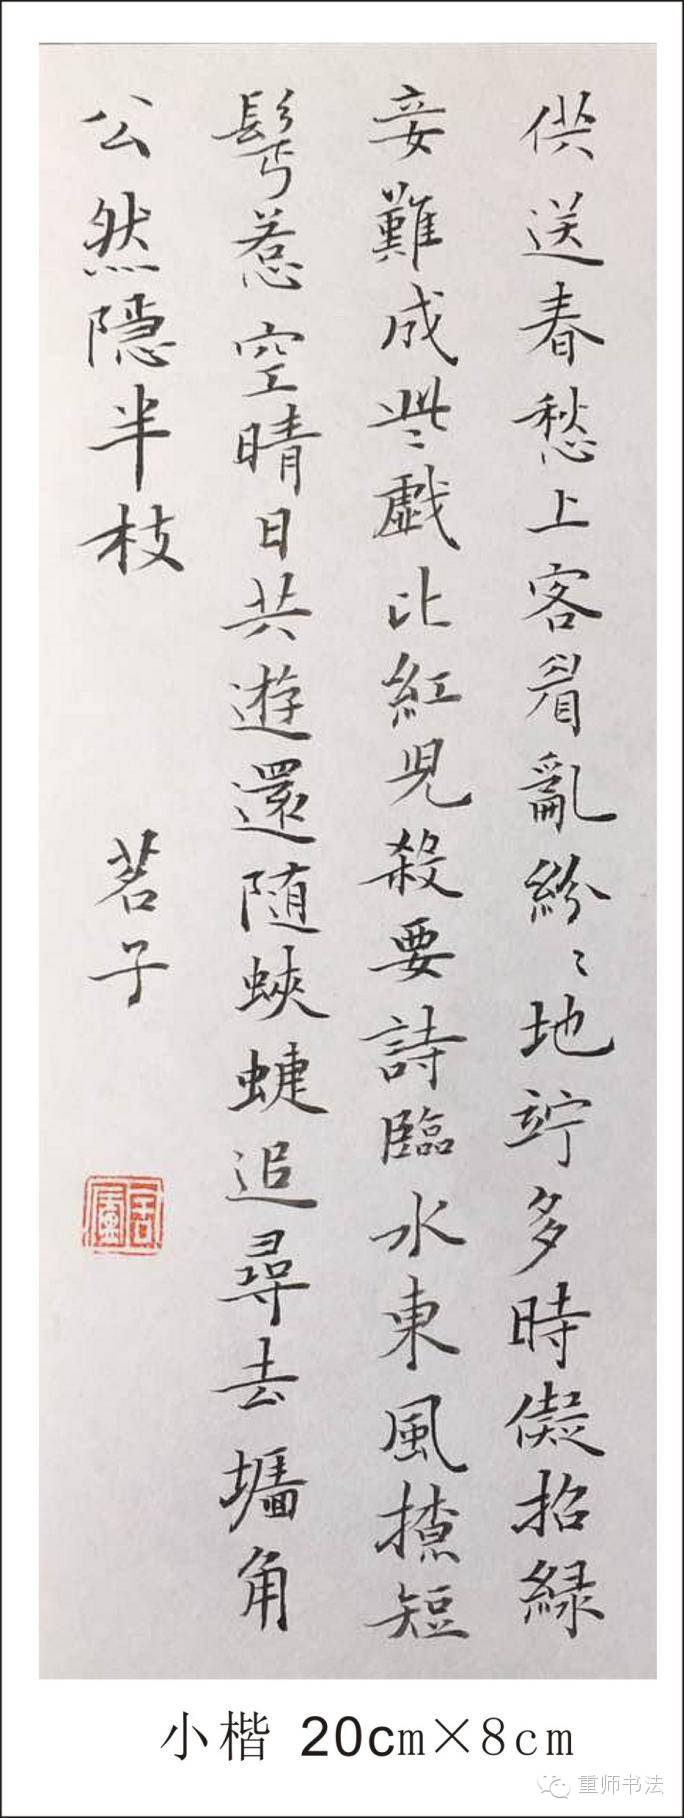 供送春愁上客眉亂紛〻地竚多時儗招緑
妾難成些戲比紅兒殺要詩臨水東風撩短
鬢惹空晴日共遊還随蛺蝶追尋去墻角
公然隱半枝
茗子
小楷 20cm×8cm
重师书法